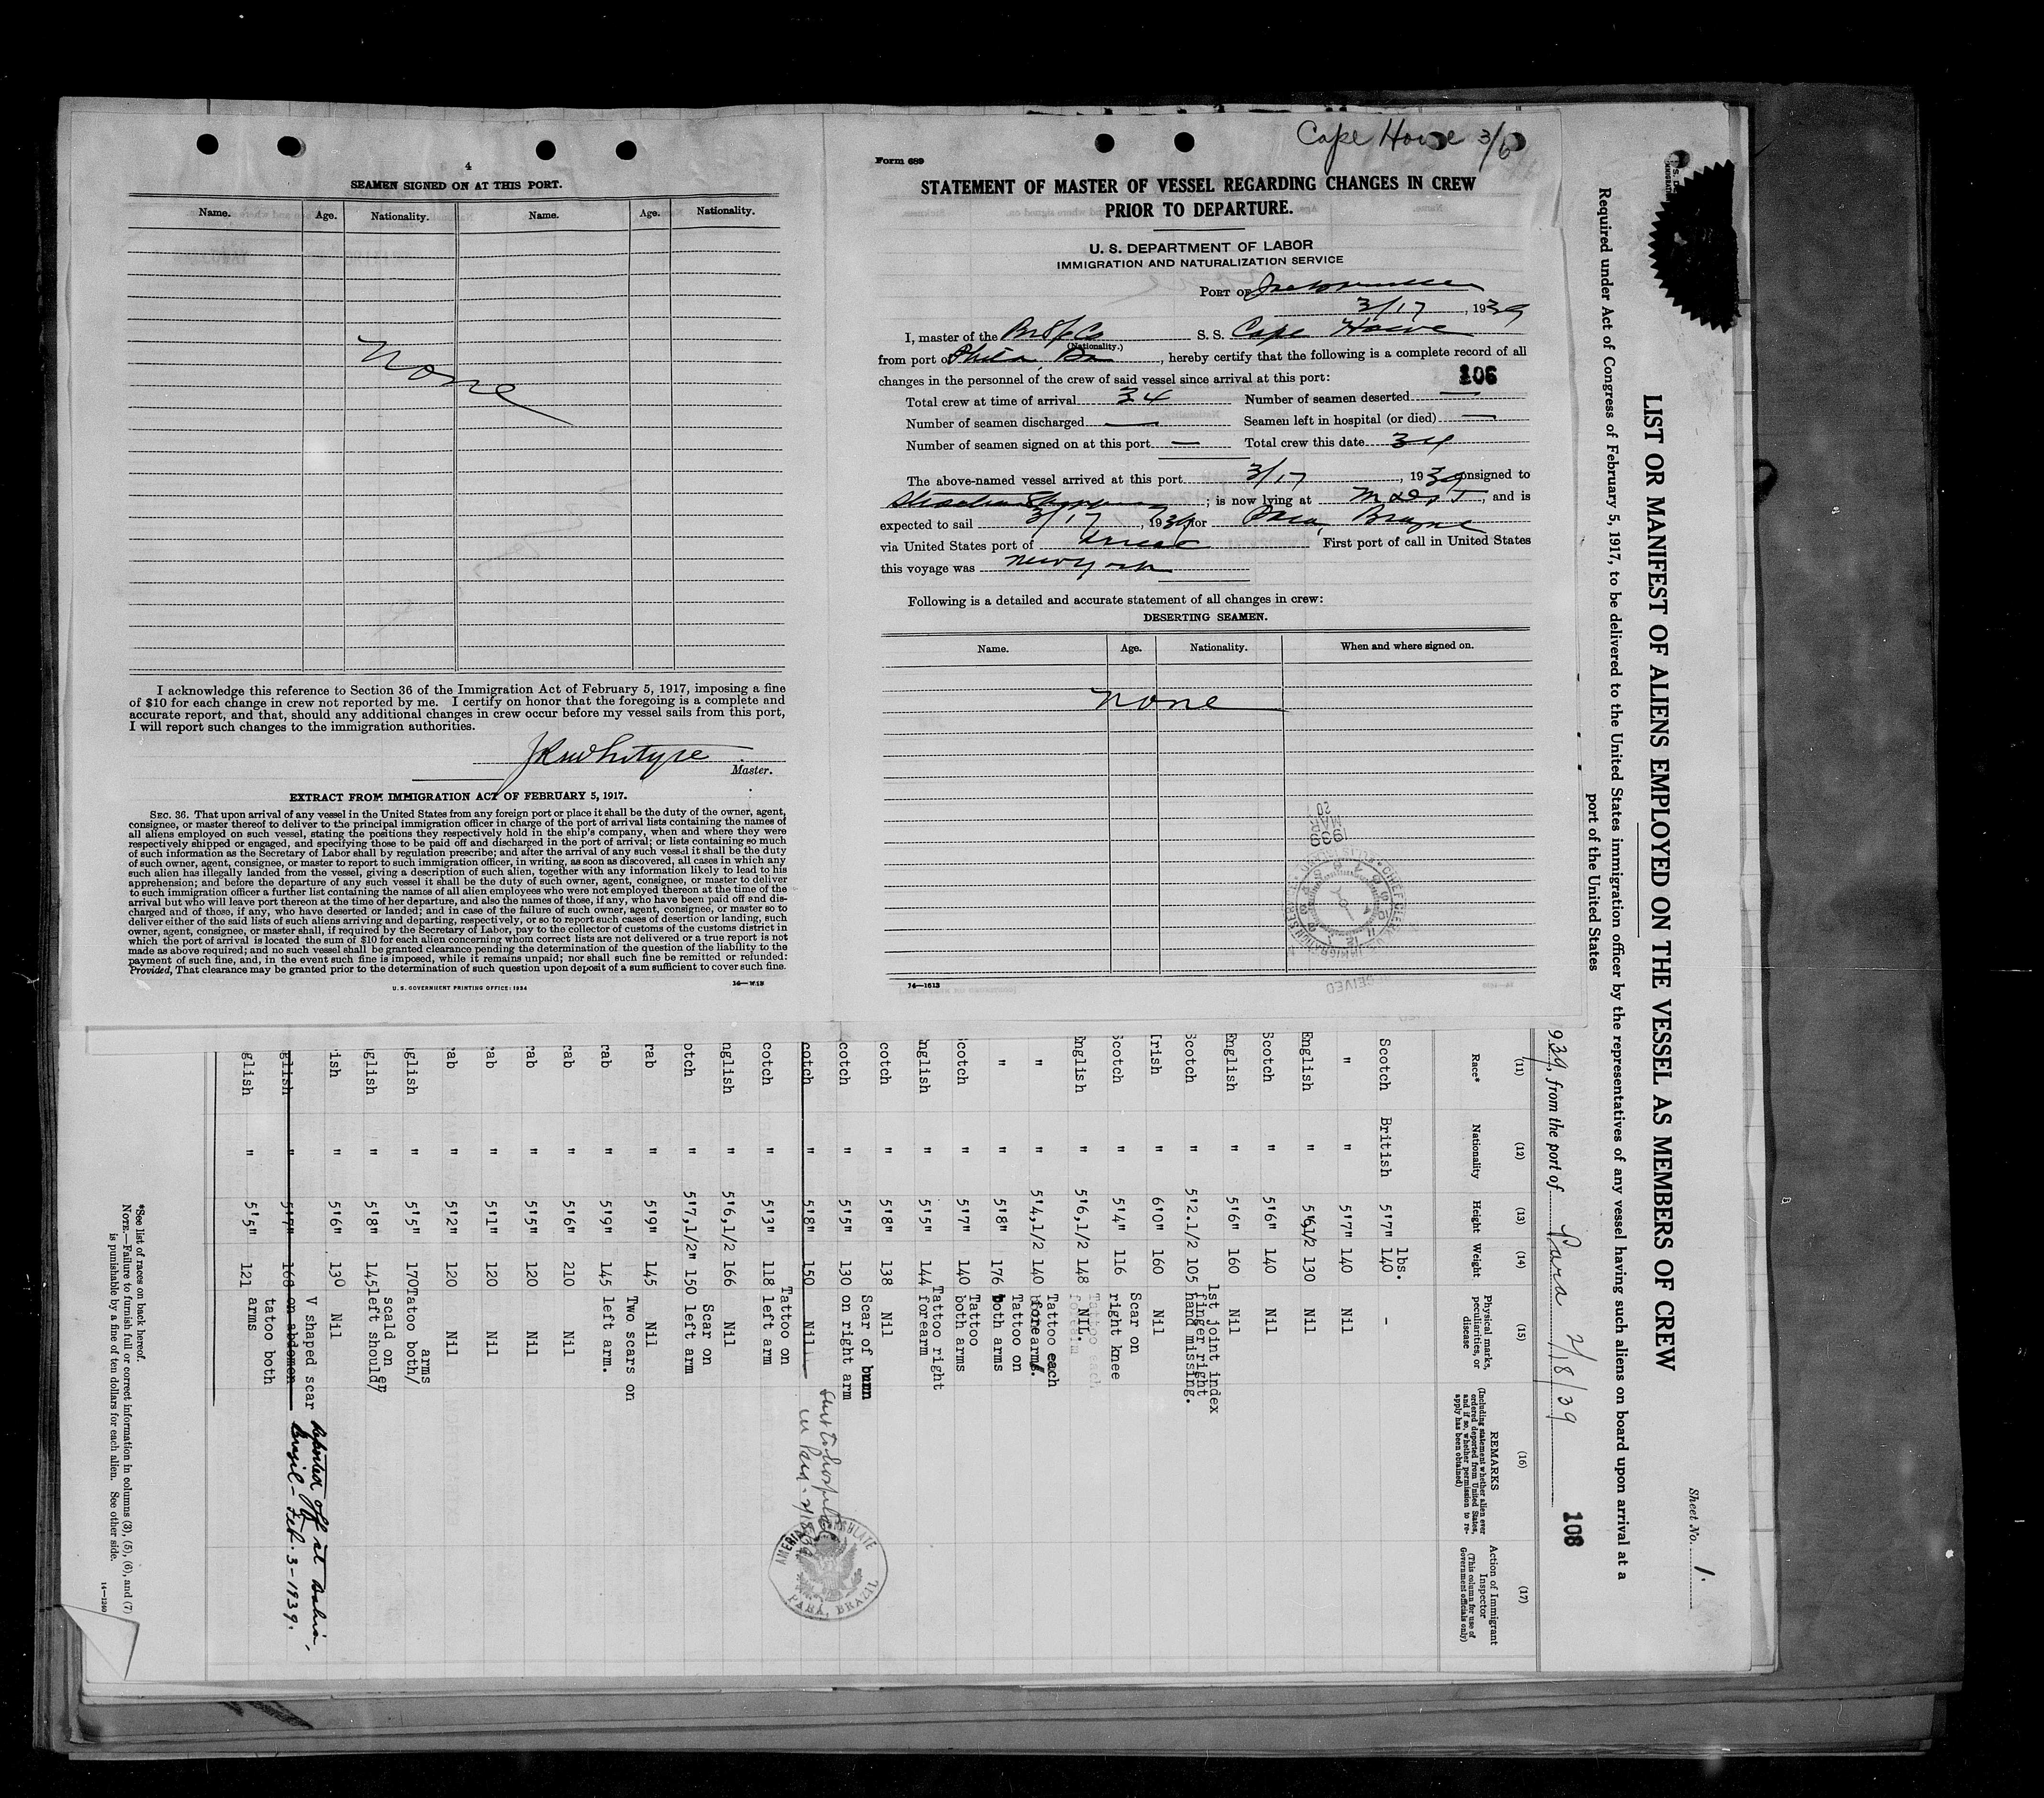 4
SEAMEN SIGNED ON AT THIS PORT.
Name. Age. Nationality. Name. Age. Nationality.
None
I acknowledge this reference to Section 36 of the Immigration Act of February 5, 1917, imposing a fine
of $10 for each change in crew not reported by me. I certify on honor that the foregoing is a complete and
accurate report, and that, should any additional changes in crew occur before my vessel sails from this port,
I will report such changes to the immigration authorities.
Master.
EXTRACT FROM IMMIGRATION ACT OF FEBRUARY 5, 1917.
SEC. 36. That upon arrival of any vessel in the United States from any foreign port or place it shall be the duty of the owner, agent,
consignee, or master thereof to deliver to the principal immigration officer in charge of the port of arrival lists containing the names of
all aliens employed on such vessel, stating the positions they respectively hold in the ship's company, when and where they were
respectively shipped or engaged, and specifying those to be paid off and discharged in the port of arrival; or lists containing so much
of such information as the Secretary of Labor shall by regulation prescribe; and after the arrival of any such vessel it shall be the duty
of such owner, agent, consignee, or master to report to such immigration officer, in writing, as soon as discovered, all cases in which any
such alien has illegally landed from the vessel, giving a description of such alien, together with any information likely to lead to his
apprehension; and before the departure of any such vessel it shall be the duty of such owner, agent, consignee, or master to deliver
to such immigration officer a further list containing the names of all alien employees who were not employed thereon at the time of the
arrival but who will leave port thereon at the time of her departure, and also the names of those, if any, who have been paid off and dis-
charged and of those, if any, who have deserted or landed; and in case of the failure of such owner, agent, consignee, or master so to
deliver either of the said lists of such aliens arriving and departing, respectively, or so to report such cases of desertion or landing, such
owner, agent, consignee, or master shall, if required by the Secretary of Labor, pay to the collector of customs of the customs district in
which the port of arrival is located the sum of $10 for each alien concerning whom correct lists are not delivered or a true report is not
made as above required; and no such vessel shall be granted clearance pending the determination of the question of the liability to the
payment of such fine, and, in the event such fine is imposed, while it remains unpaid; nor shall such fine be remitted or refunded:
Provided, That clearance may be granted prior to the determination of such question upon deposit of a sum sufficient to cover such fine.
U. S. GOVERNMENT PRINTING OFFICE: 1934
Cape Howe 3/6
Form 689
STATEMENT OF MASTER OF VESSEL REGARDING CHANGES IN CREW
PRIOR TO DEPARTURE.
U. S. DEPARTMENT OF LABOR
IMMIGRATION AND NATURALIZATION SERVICE
PORT OF Jacksonville
3/17, 1939
I, master of the S. S. Cape Howe
(Nationality.)
from port of Phila, Pa, hereby certify that the following is a complete record of all
changes in the personnel of the crew of said vessel since arrival at this port:
106
Total crew at time of arrival 34 Number of seamen deserted —
Number of seamen discharged — Seamen left in hospital (or died) —
Number of seamen signed on at this port — Total crew this date 34
The above-named vessel arrived at this port 3/17, 1939 consigned to
Strachan Shipping; is now lying at, and is
expected to sail 3/17, 1939 for Para,
via United States port of First port of call in United States
this voyage was New York
Following is a detailed and accurate statement of all changes in crew:
DESERTING SEAMEN.
Name. Age. Nationality. When and where signed on.
none
1939
MAR
20
RECEIVED
14—1613
Sheet No. 1.
LIST OR MANIFEST OF ALIENS EMPLOYED ON THE VESSEL AS MEMBERS OF CREW
Required under Act of Congress of February 5, 1917, to be delivered to the United States immigration officer by the representatives of any vessel having such aliens on board upon arrival at a
port of the United States
939, from the port of Para 2/18/39
108
(11) (12) (13) (14) (15) (16) (17)
Race* Nationality Height Weight Physical marks, peculiarities, or disease REMARKS (Including statement whether alien ever ordered deported from United States, and if so, whether permission to re-apply has been obtained) Action of Immigrant Inspector (This column for use of Government officials only)
lbs.
Scotch British 5'7" 140 -
" " 5'7" 140 Nil
English " 5'6,1/2 130 Nil
Scotch " 5'6" 140 Nil
English " 5'6" 160 Nil
Scotch " 5'2.1/2 105 1st joint index finger right hand missing.
Irish " 6'0" 160 Nil
Scotch " 5'4" 116 Scar on right knee
English " 5'6,1/2 148 NIL.
" " 5'4,1/2 140 Tattoo each forearm.
" " 5'8" 176 Tattoo on both arms
Scotch " 5'7" 140 Tattoo both arms
nglish " 5'5" 144 Tattoo right forearm
cotch " 5'8" 138 Nil
cotch " 5'5" 130 Scar of burn on right arm
cotch " 5'8" 150 Nil Sent to hospital in Para. 2/18/39
cotch " 5'3" 118 Tattoo on left arm
nglish " 5'6,1/2 166 Nil
otch " 5'7,1/2" 150 Scar on left arm
rab " 5'9" 145 Nil
rab " 5'9" 145 Two scars on left arm.
rab " 5'6" 210 Nil
rab " 5'5" 120 Nil
rab " 5'1" 120 Nil
rab " 5'2" 120 Nil
glish " 5'5" 170 Tattoo both/ arms
glish " 5'8" 145 scald on left should/er
ish " 5'6" 130 Nil
glish " 5'7" 160 V shaped scar on abdomen Deported off at Bahia, Brazil - Feb. 3 - 1939.
glish " 5'5" 121 tatoo both arms
AMERICAN CONSULATE
PARÁ, BRAZIL
*See list of races on back hereof.
NOTE.—Failure to furnish full or correct information in columns (3), (5), (6), and (7)
is punishable by a fine of ten dollars for each alien. See other side.
14—1240